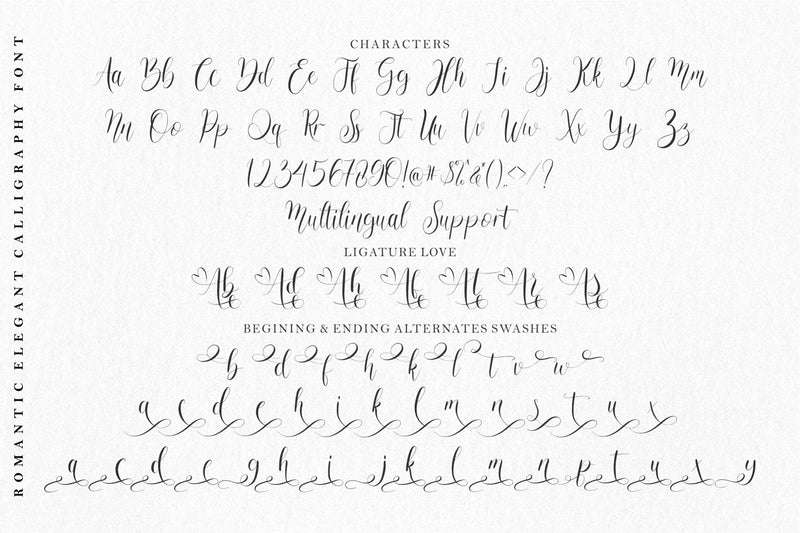 ROMANTIC ELEGANT CALLIGRAPHY FONT
CHARACTERS
Aa Bb Cc Dd Ee Ff Gg Hh Ii Jj Kk Ll Mm
Nn Oo Pp Qq Rr Ss Tt Uu Vv Ww Xx Yy Zz
1234567890!@#$%&*(),.<>/?
Multilingual Support
LIGATURE LOVE
Ab Ad Ah Af At Ar As
BEGINING & ENDING ALTERNATES SWASHES
b d f h k l t v w
a c d e h i k l m n s t u x
a c d e g h i j k l m n p t u x y